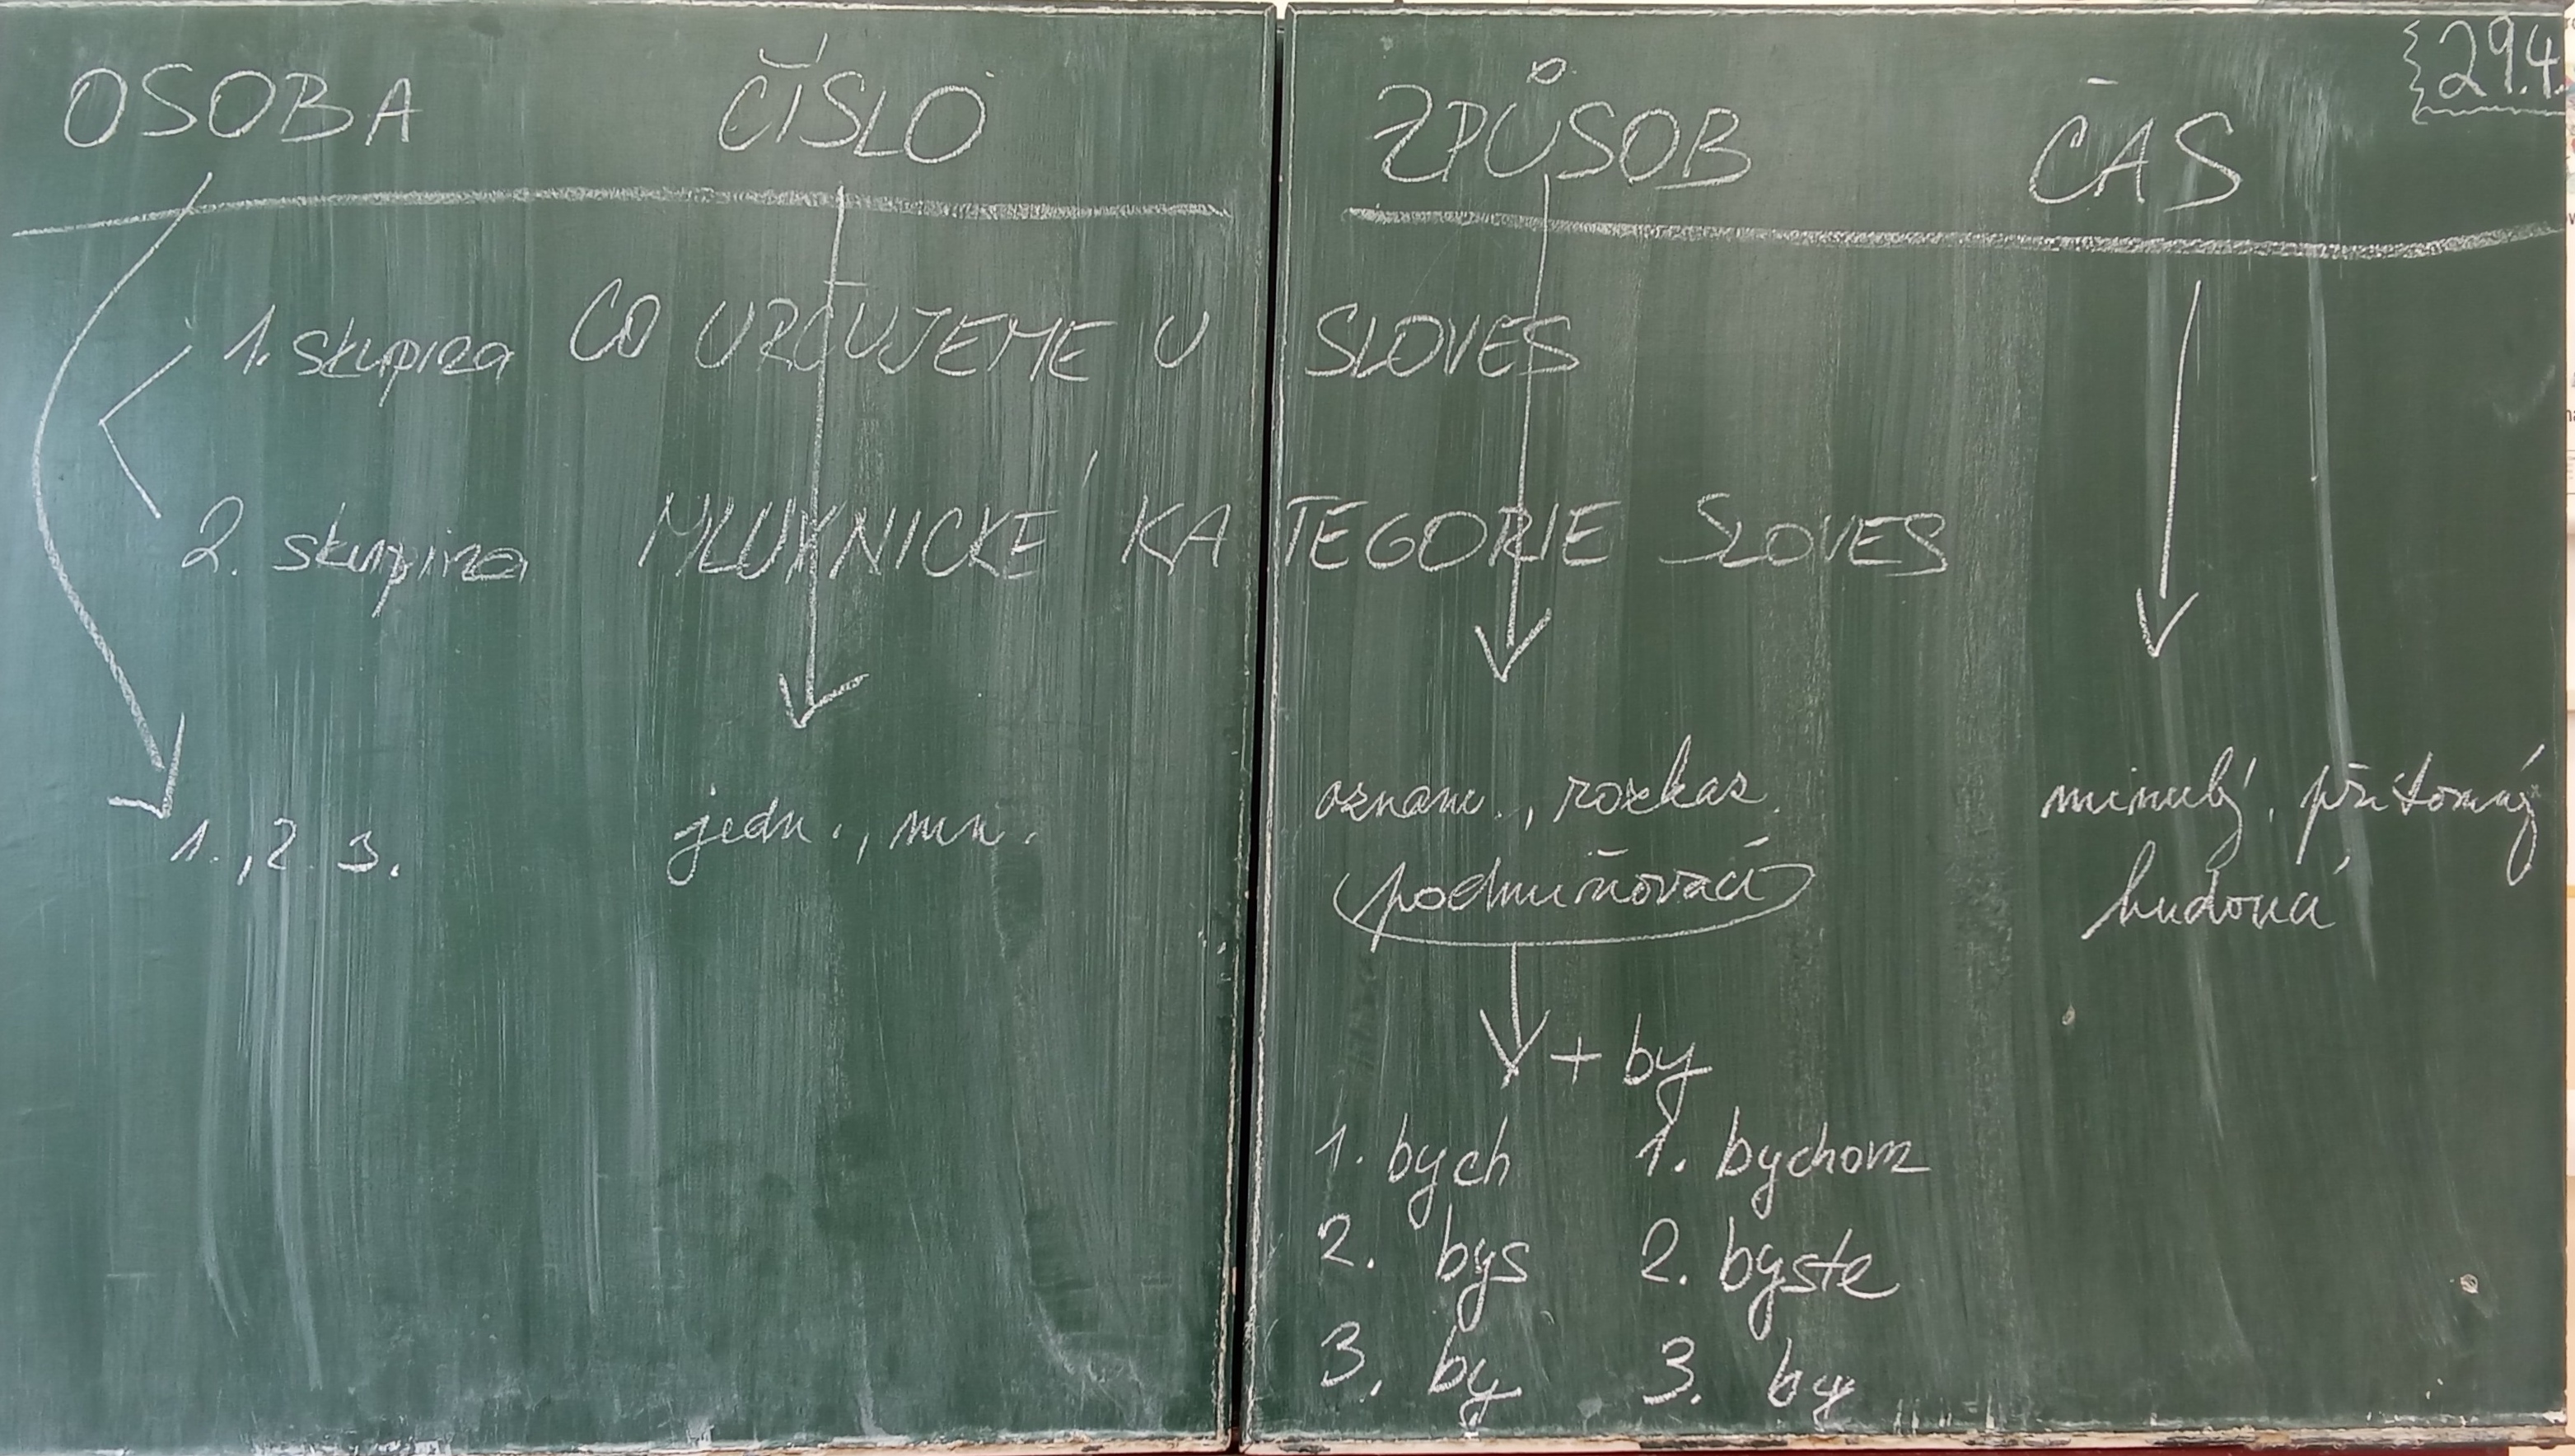 29.4.
OSOBA ČÍSLO ZPŮSOB ČAS
1. skupina CO URČUJEME U SLOVES
2. skupina MLUVNICKÉ KATEGORIE SLOVES
1., 2. 3. jedn., mn. oznam., rozkaz. minulý, přítomný
podmiňovací budoucí
+ by
1. bych 1. bychom
2. bys 2. byste
3. by 3. by